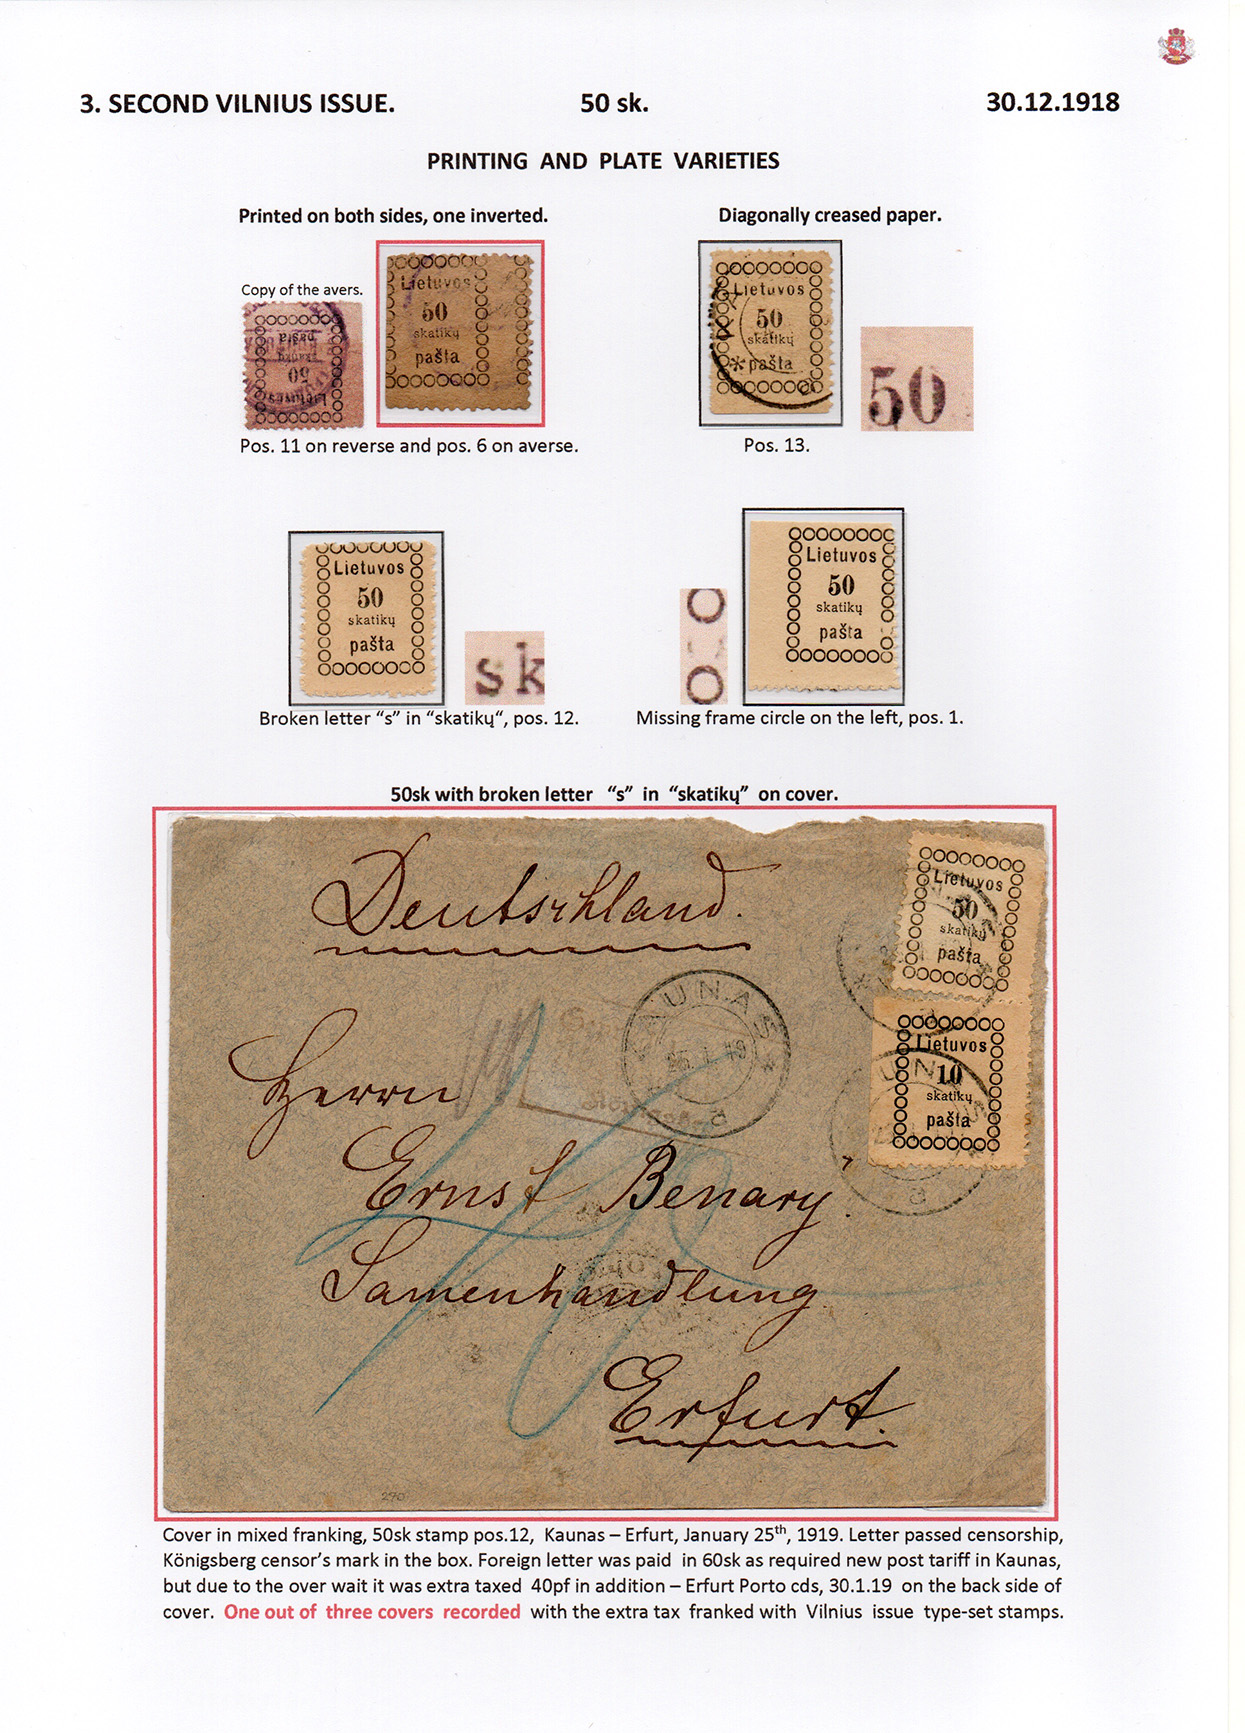 3. SECOND VILNIUS ISSUE. 50 sk. 30.12.1918
PRINTING AND PLATE VARIETIES
Printed on both sides, one inverted.
Diagonally creased paper.
Copy of the avers.
Lietuvos
50
skatikų
pašta
Lietuvos
50
skatikų
pašta
Lietuvos
50
skatikų
pašta
50
Pos. 11 on reverse and pos. 6 on averse.
Pos. 13.
Lietuvos
50
skatikų
pašta
sk
Lietuvos
50
skatikų
pašta
Broken letter “s” in “skatikų“, pos. 12.
Missing frame circle on the left, pos. 1.
50sk with broken letter “s” in “skatikų” on cover.
Deutschland.
Lietuvos
50
skatikų
pašta
KAUNAS
25. 1. 19
Lietuvos
10
skatikų
pašta
Herrn
Ernst Benary.
Samenhandlung
Erfurt.
290
Cover in mixed franking, 50sk stamp pos.12, Kaunas – Erfurt, January 25th, 1919. Letter passed censorship,
Königsberg censor’s mark in the box. Foreign letter was paid in 60sk as required new post tariff in Kaunas,
but due to the over wait it was extra taxed 40pf in addition – Erfurt Porto cds, 30.1.19 on the back side of
cover. One out of three covers recorded with the extra tax franked with Vilnius issue type-set stamps.